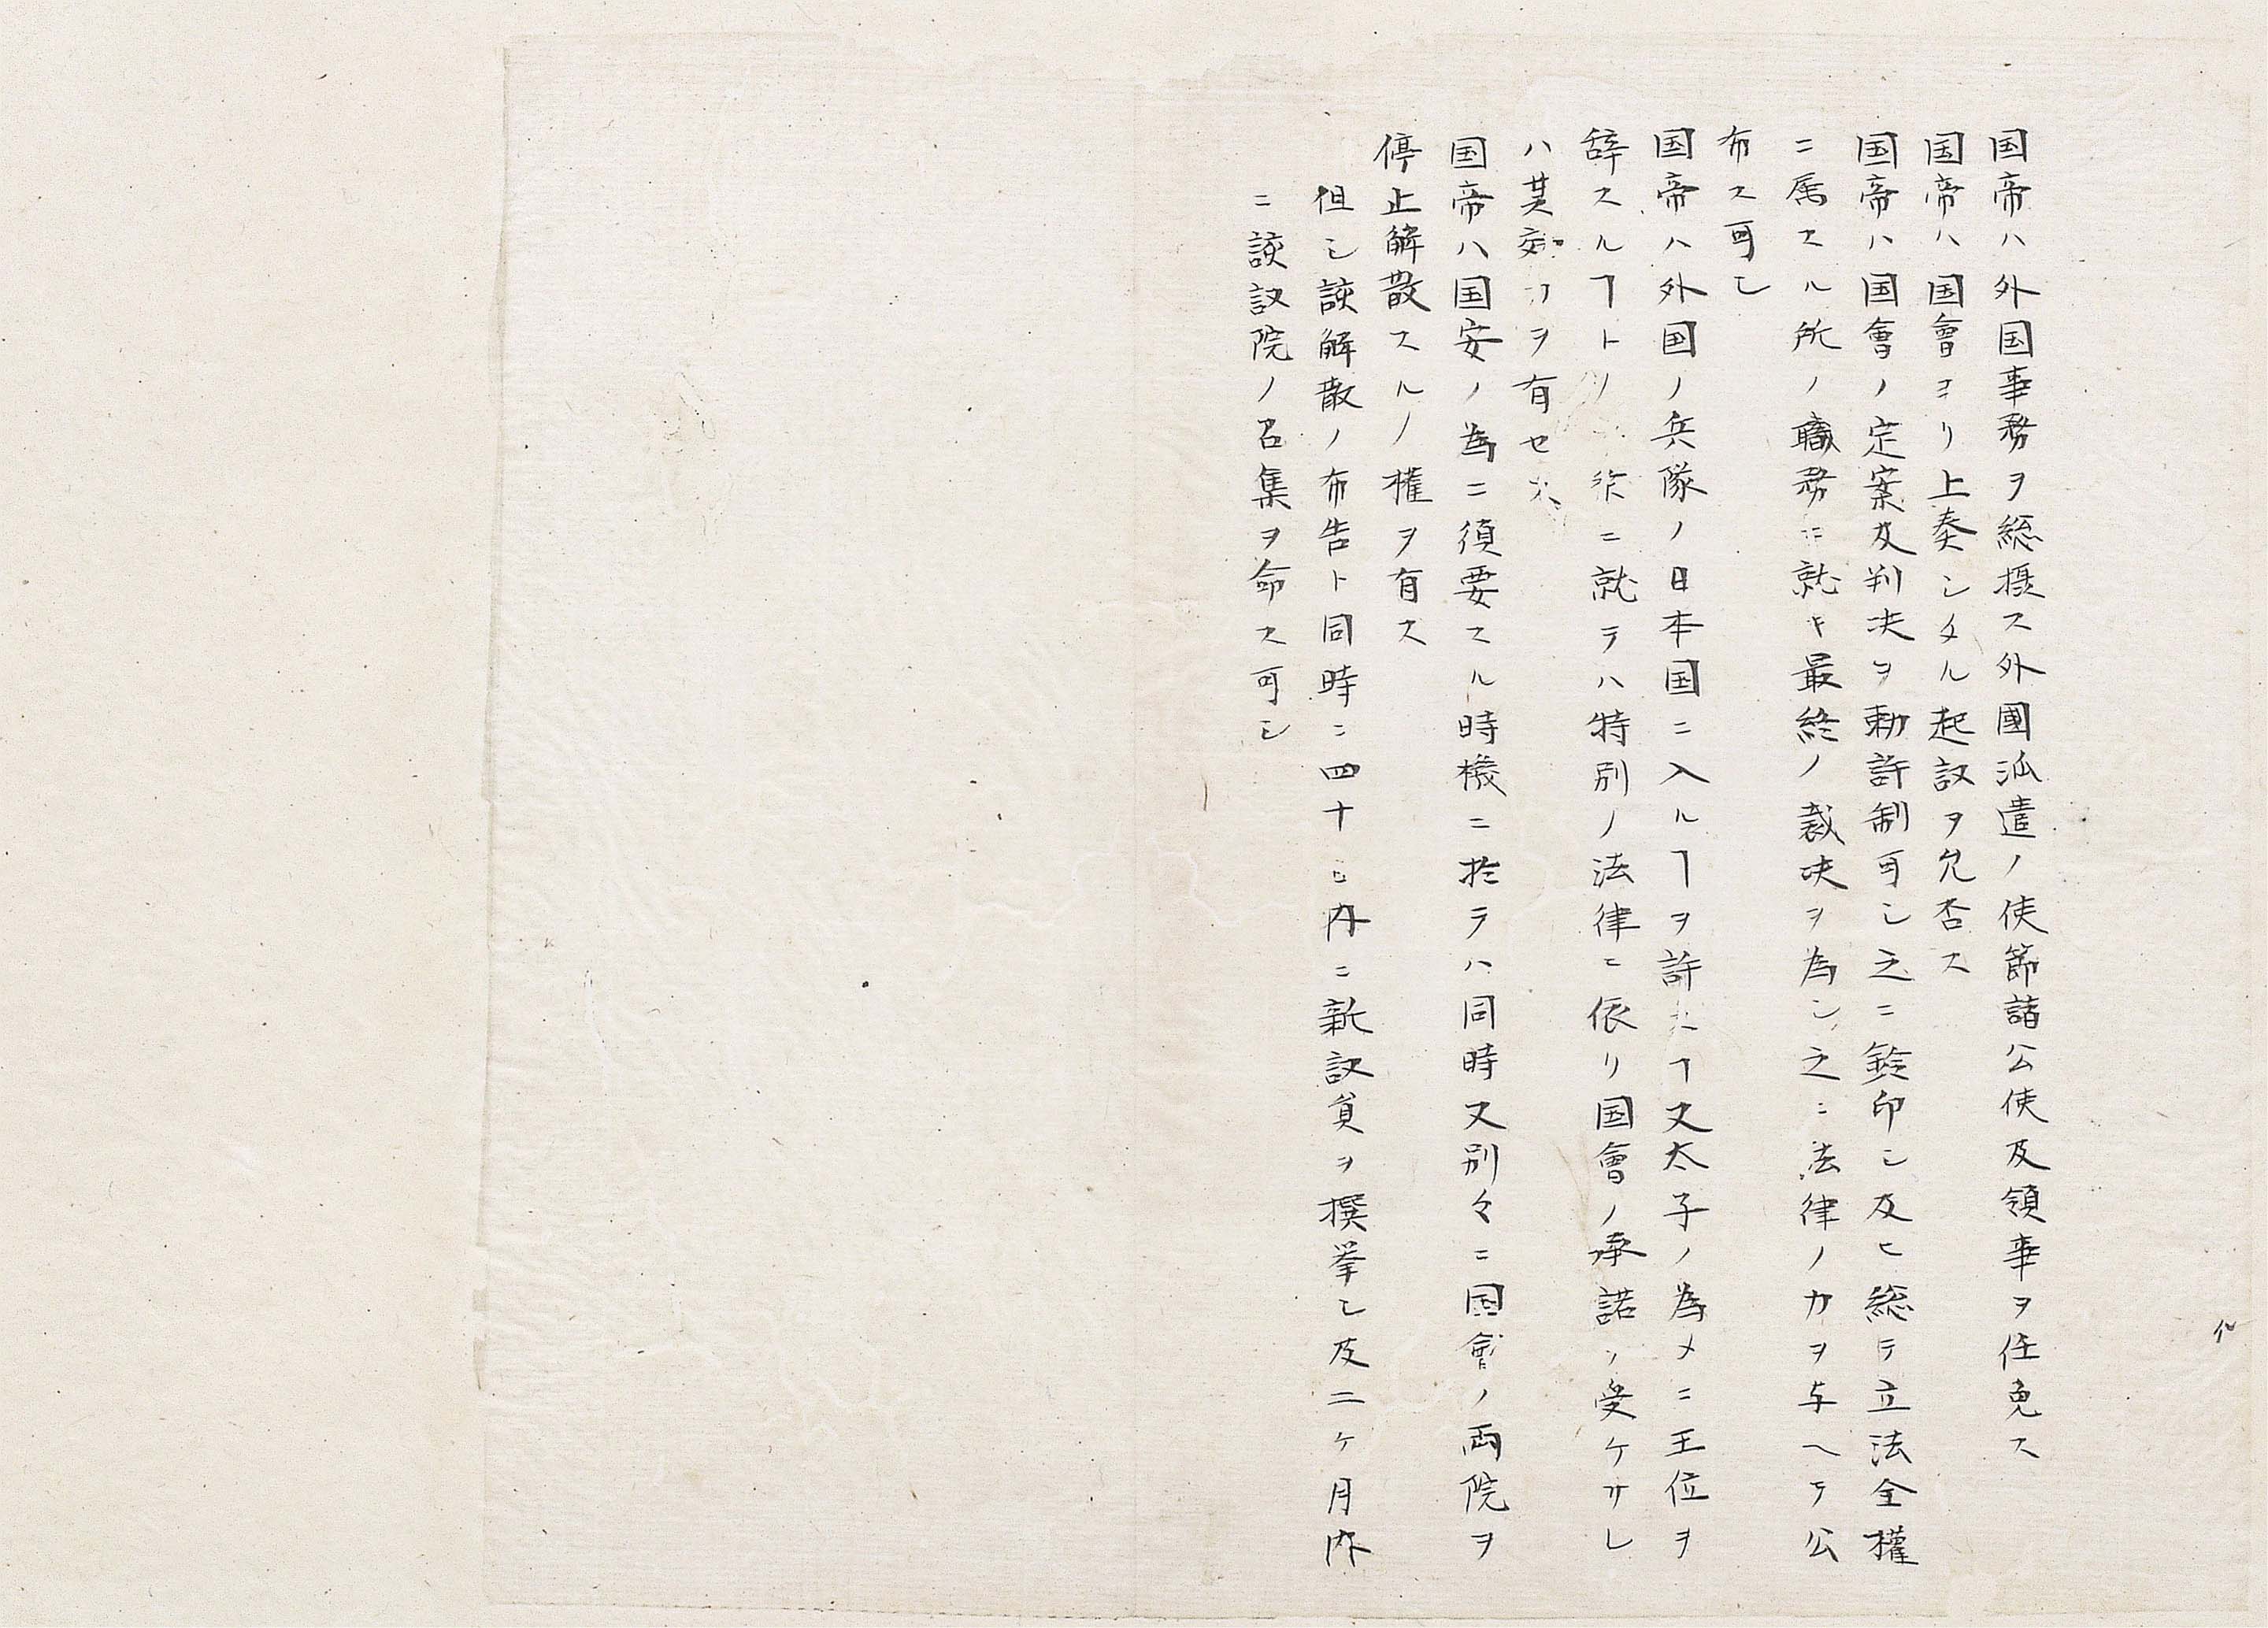 国帝ハ外国事務ヲ総摂ス外國派遣ノ使節諸公使及領事ヲ任免ス
国帝ハ国會ヨリ上奏シタル起議ヲ允否ス
国帝ハ国會ノ定案及判决ヲ勅許制可シ之ニ鈴印シ及ヒ総テ立法全權
ニ属スル所ノ職務ニ就キ最終ノ裁决ヲ為シ之ニ法律ノ力ヲ与ヘテ公
布ス可シ
国帝ハ外国ノ兵隊ノ日本国ニ入ルヿヲ許スヿ又太子ノ為メニ王位ヲ
辞スルヿトノ 條ニ就テハ特別ノ法律ニ依リ国會ノ承諾ヲ受ケサレ
ハ其効力ヲ有セス
国帝ハ国安ノ為ニ須要スル時機ニ於テハ同時又別々ニ国會ノ両院ヲ
停止解散スルノ權ヲ有ス
但シ該解散ノ布告ト同時ニ四十日内ニ新議員ヲ撰挙シ及二ケ月内
ニ該議院ノ召集ヲ命ス可シ